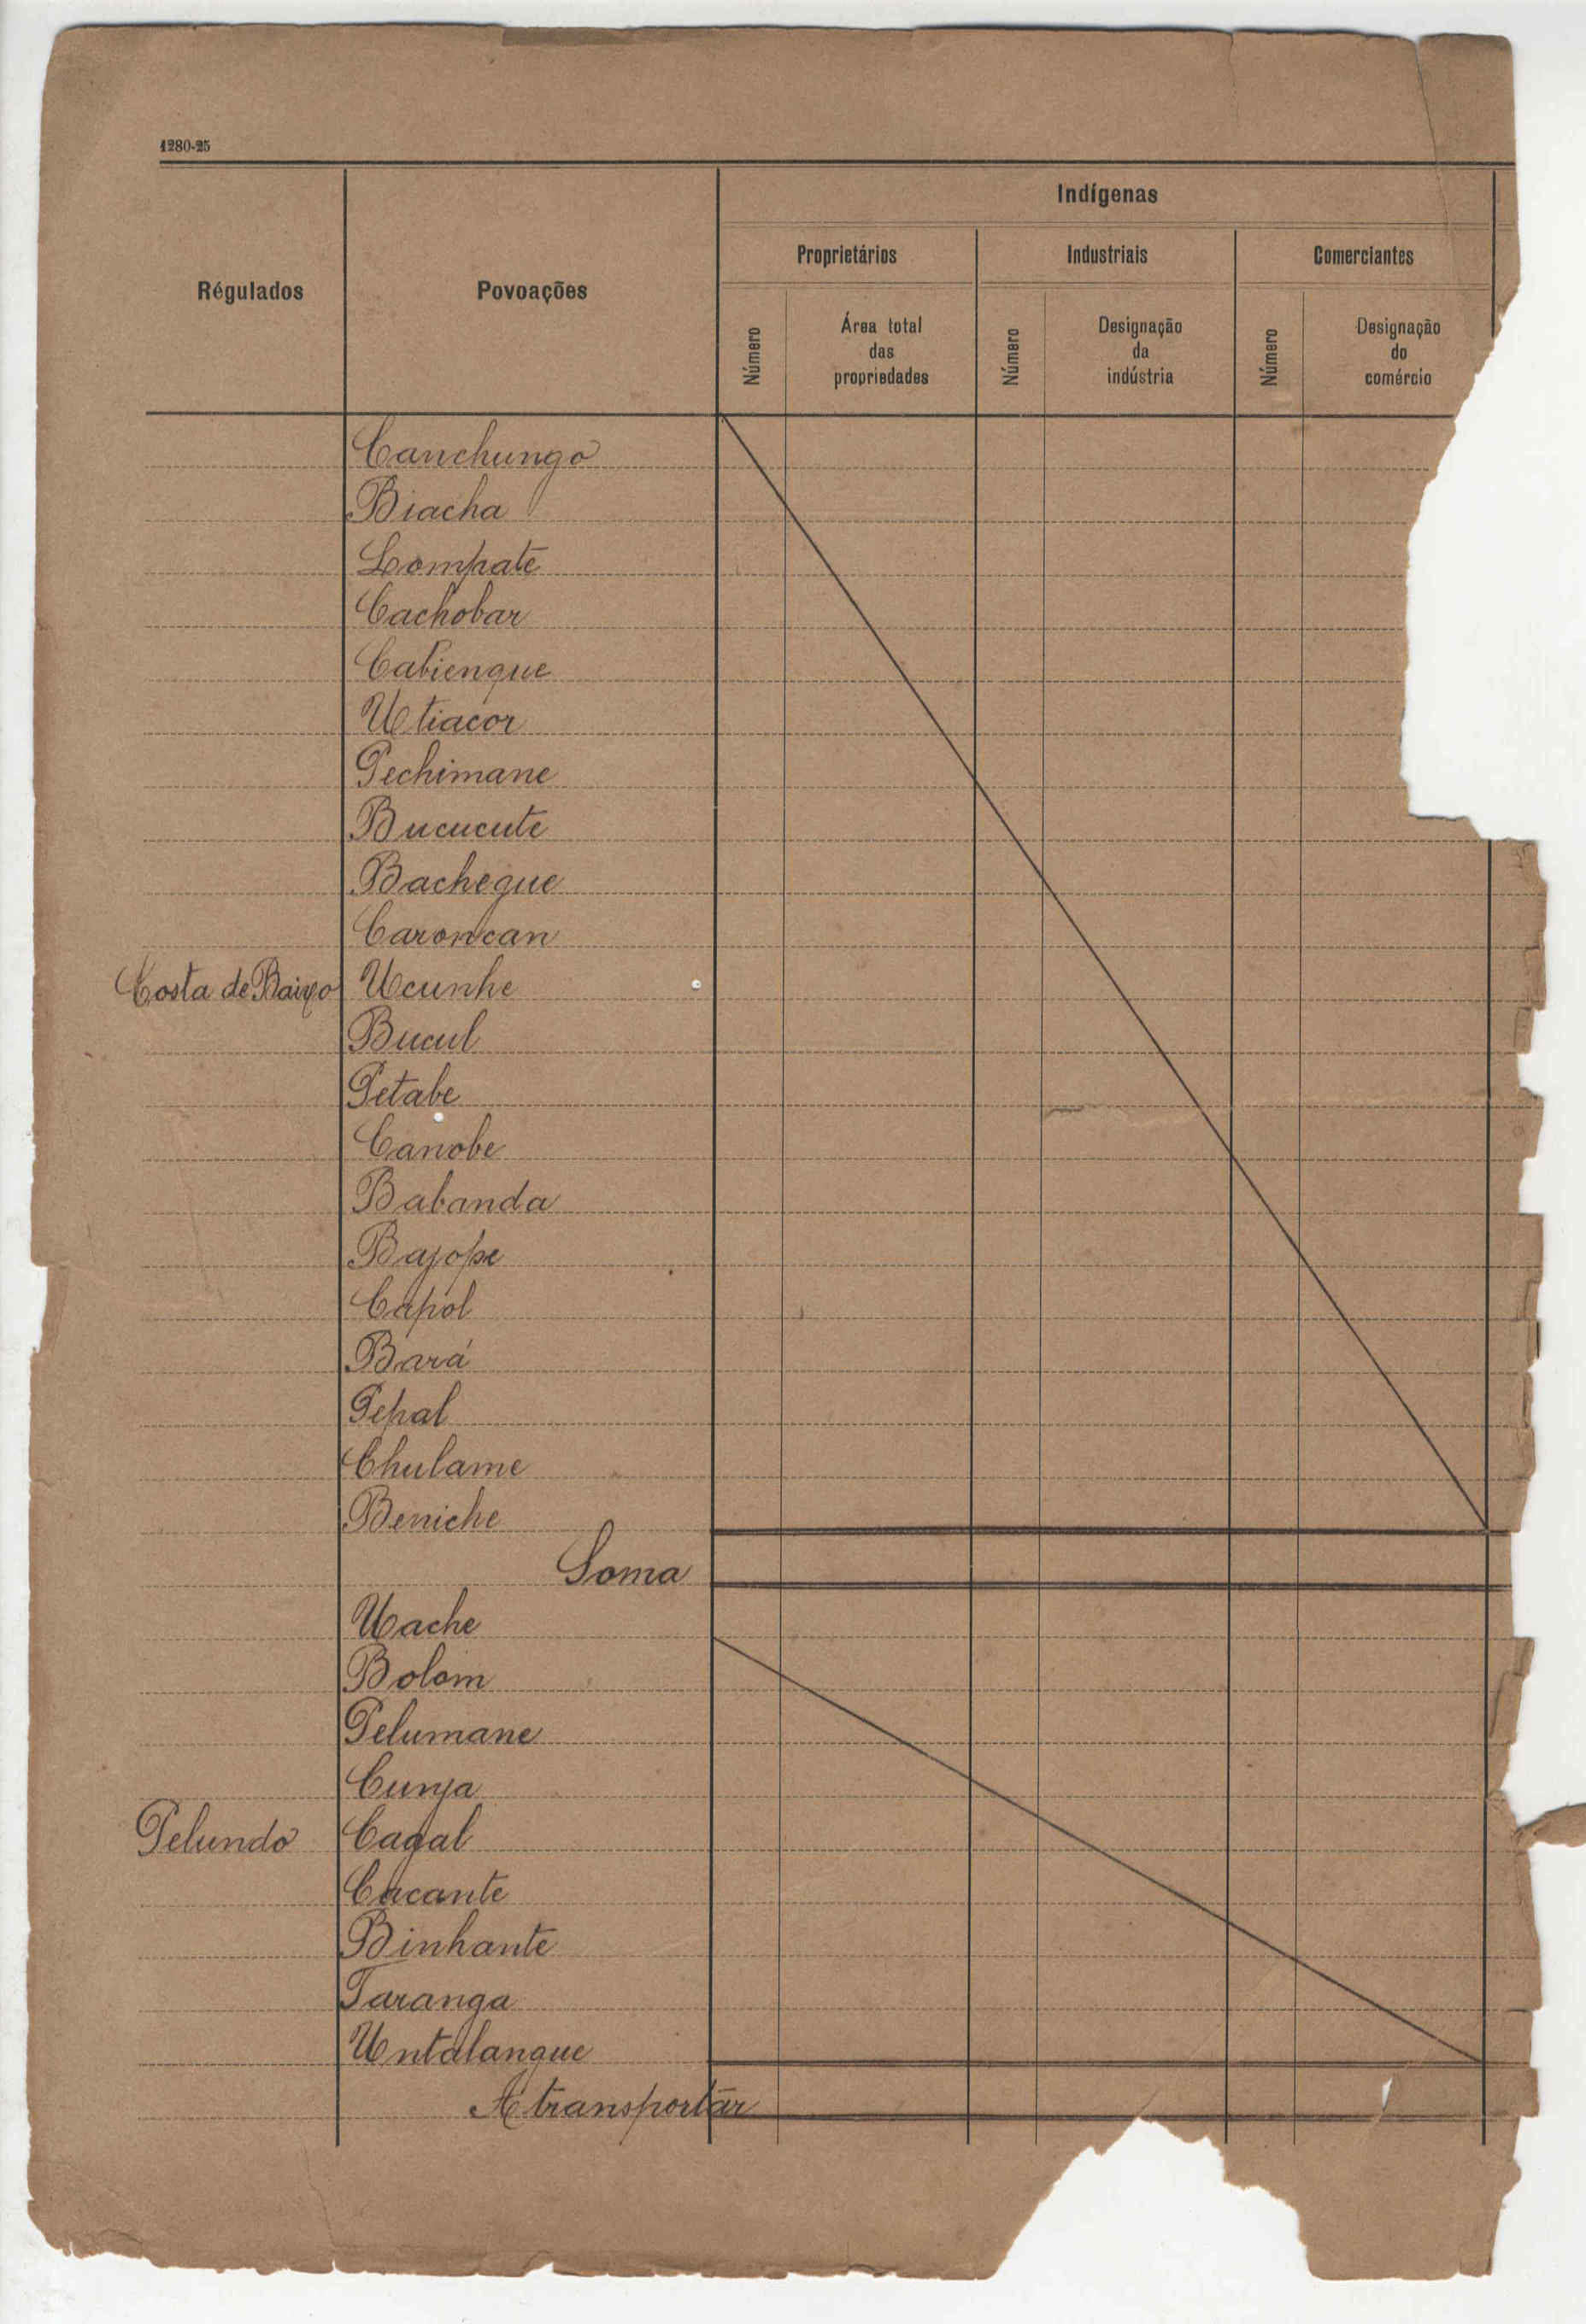 1280-25
Indígenas
Proprietários Industriais Comerciantes
Régulados Povoações
Número Área total das propriedades Número Designação da indústria Número Designação do comércio
Canchungo
Biacha
Lompate
Cachobar
Cabienque
Utiacor
Pechimane
Bucucute
Bacheque
Caroncan
Costa de Baixo Ucunhe
Bucul
Petabe
Canobe
Babanda
Bajope
Capol
Bará
Pepal
Chulame
Beniche
Soma
Uache
Bolom
Pelumane
Cunja
Pelundo Cagal
Cacante
Binhante
Taranga
Untalangue
A transportar